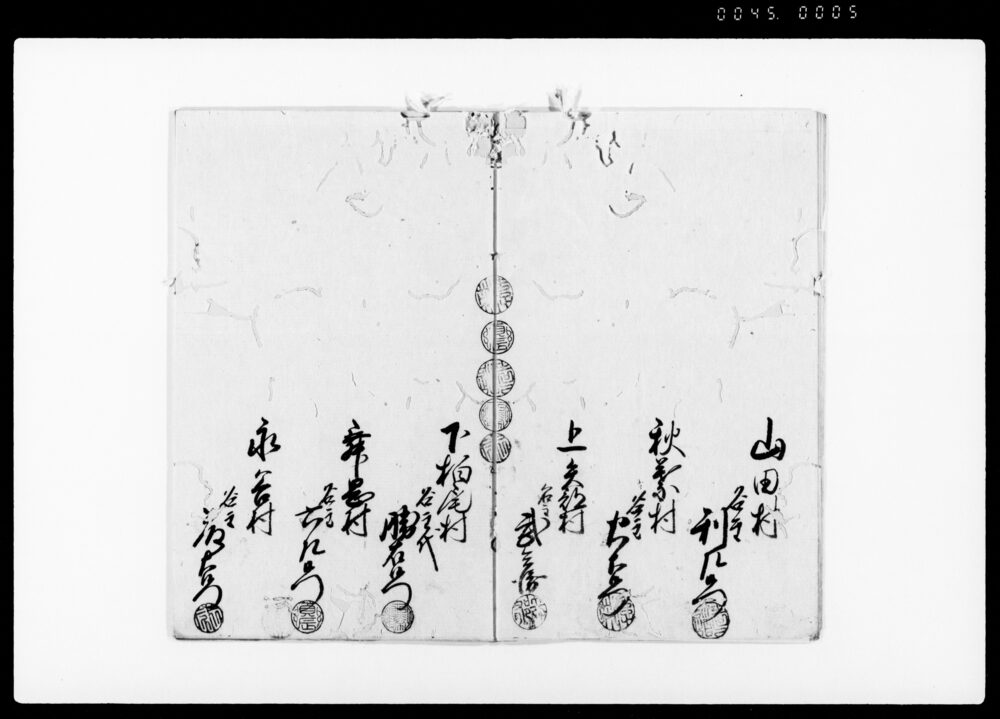 0045. 0005
山田村
名主
利左衛門
秋葉村
名主
上矢部村
名主
武兵衛
下柏尾村
名主代
勝右衛門
舞岡村
名主
六左衛門
永谷村
名主